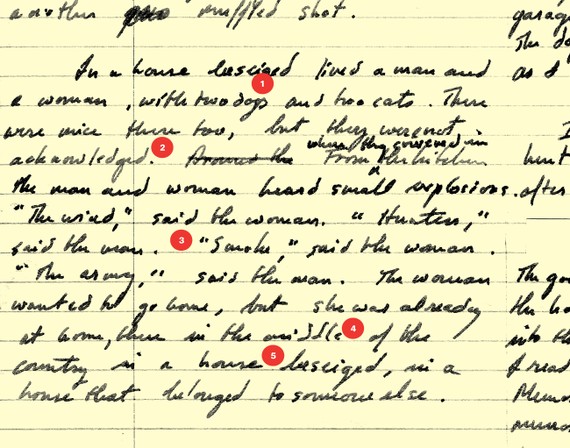 another muffled shot.
In a house beseiged lived a man and
1
a woman, with two dogs and two cats. There
were mice there too, but they were not
2
where they cowered in
acknowledged. Around the From the kitchen
the man and woman heard small explosions.
"The wind," said the woman. "Hunters,"
said the man. 3 "Smoke," said the woman.
"The army," said the man. The woman
wanted to go home, but she was already
at home, there in the middle 4 of the
country in a house 5 beseiged, in a
house that belonged to someone else.
garag
The do
as I
after
The go
the ho
into th
I read